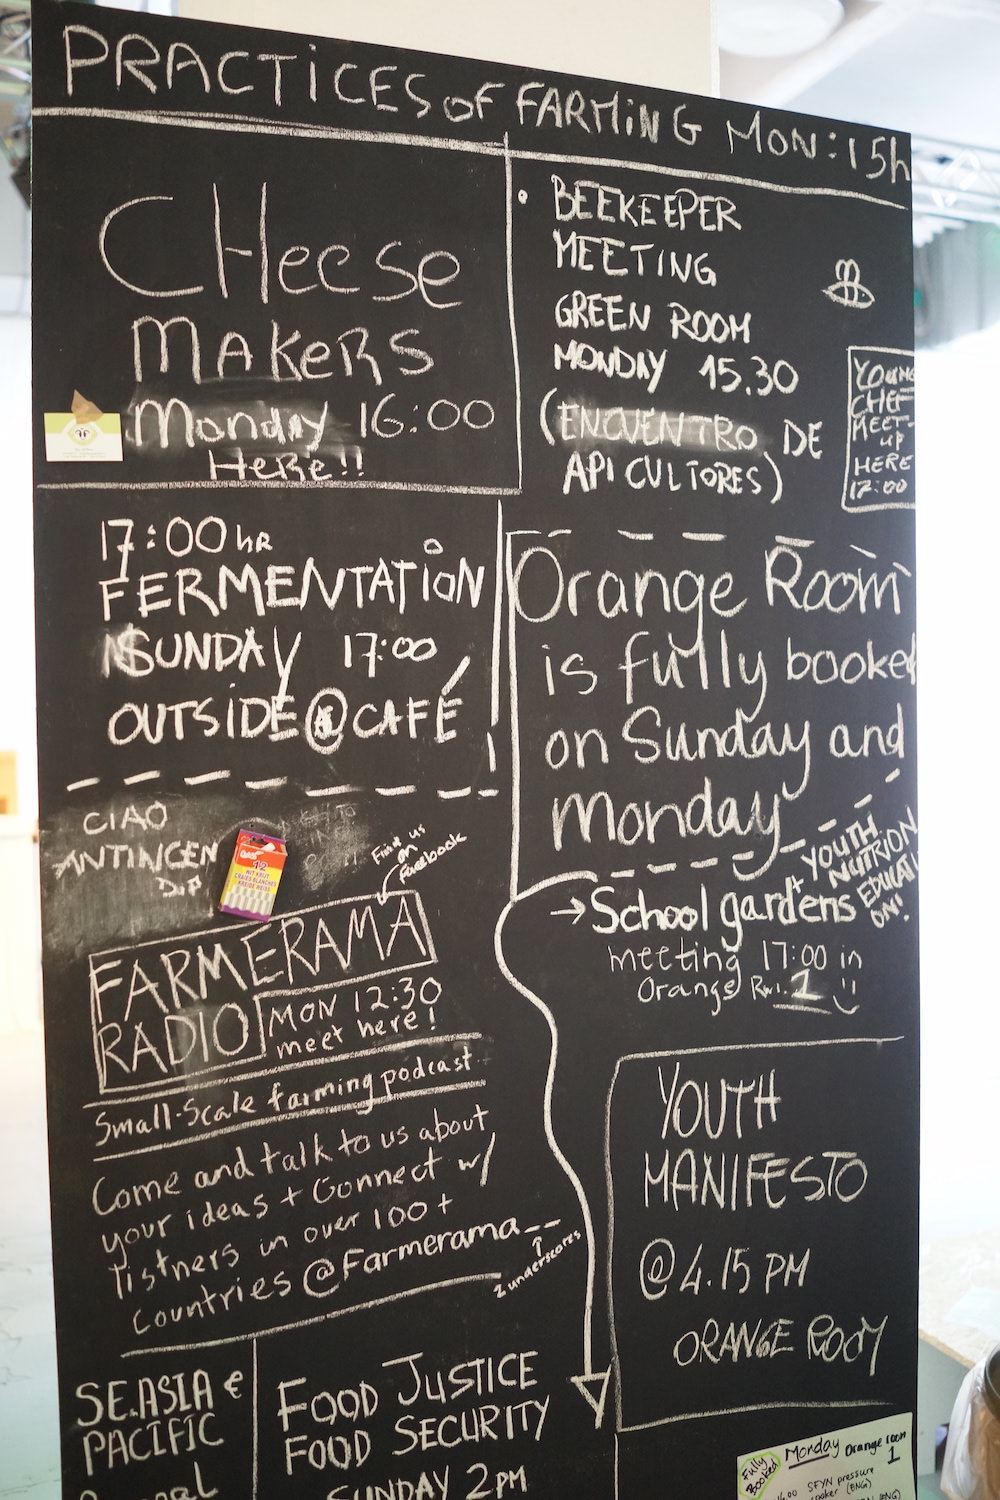 PRACTICES OF FARMING MON: 15h
CHeese
MAKeRS
Monday 16:00
HeRe!!
BEEKEEPER
MEETING
GREEN ROOM
MONDAY 15.30
(ENCUENTRO DE
APICULTORES)
YOUNG
CHEF
MEET-
UP
HERE
17:00
17:00 HR
FERMENTATION
SUNDAY 17:00
OUTSIDE @ CAFÉ
Orange Room
is fully booked
on Sunday and
Monday
CIAO
ANTINGEN
12
WIT KRIJT
CRAIES BLANCHES
KREIDE WEISS
Find us
on
Facebook
FARMERAMA
RADIO
MON 12:30
meet here!
Small-Scale farming podcast
Come and talk to us about
your ideas + Connect w/
listners in over 100+
Countries @Farmerama__
2 underscores
+ YOUTH
NUTRION
EDUCATI
ON!
→ School gardens
meeting 17:00 in
Orange Rm. 1
YOUTH
MANIFESTO
@ 4.15 PM
ORANGE ROOM
SE.ASIA &
PACIFIC
FOOD JUSTICE
FOOD SECURITY
SUNDAY 2PM
Fully
Booked
Monday Orange room
1
SFYN pressure
(ENG)
(ENG)